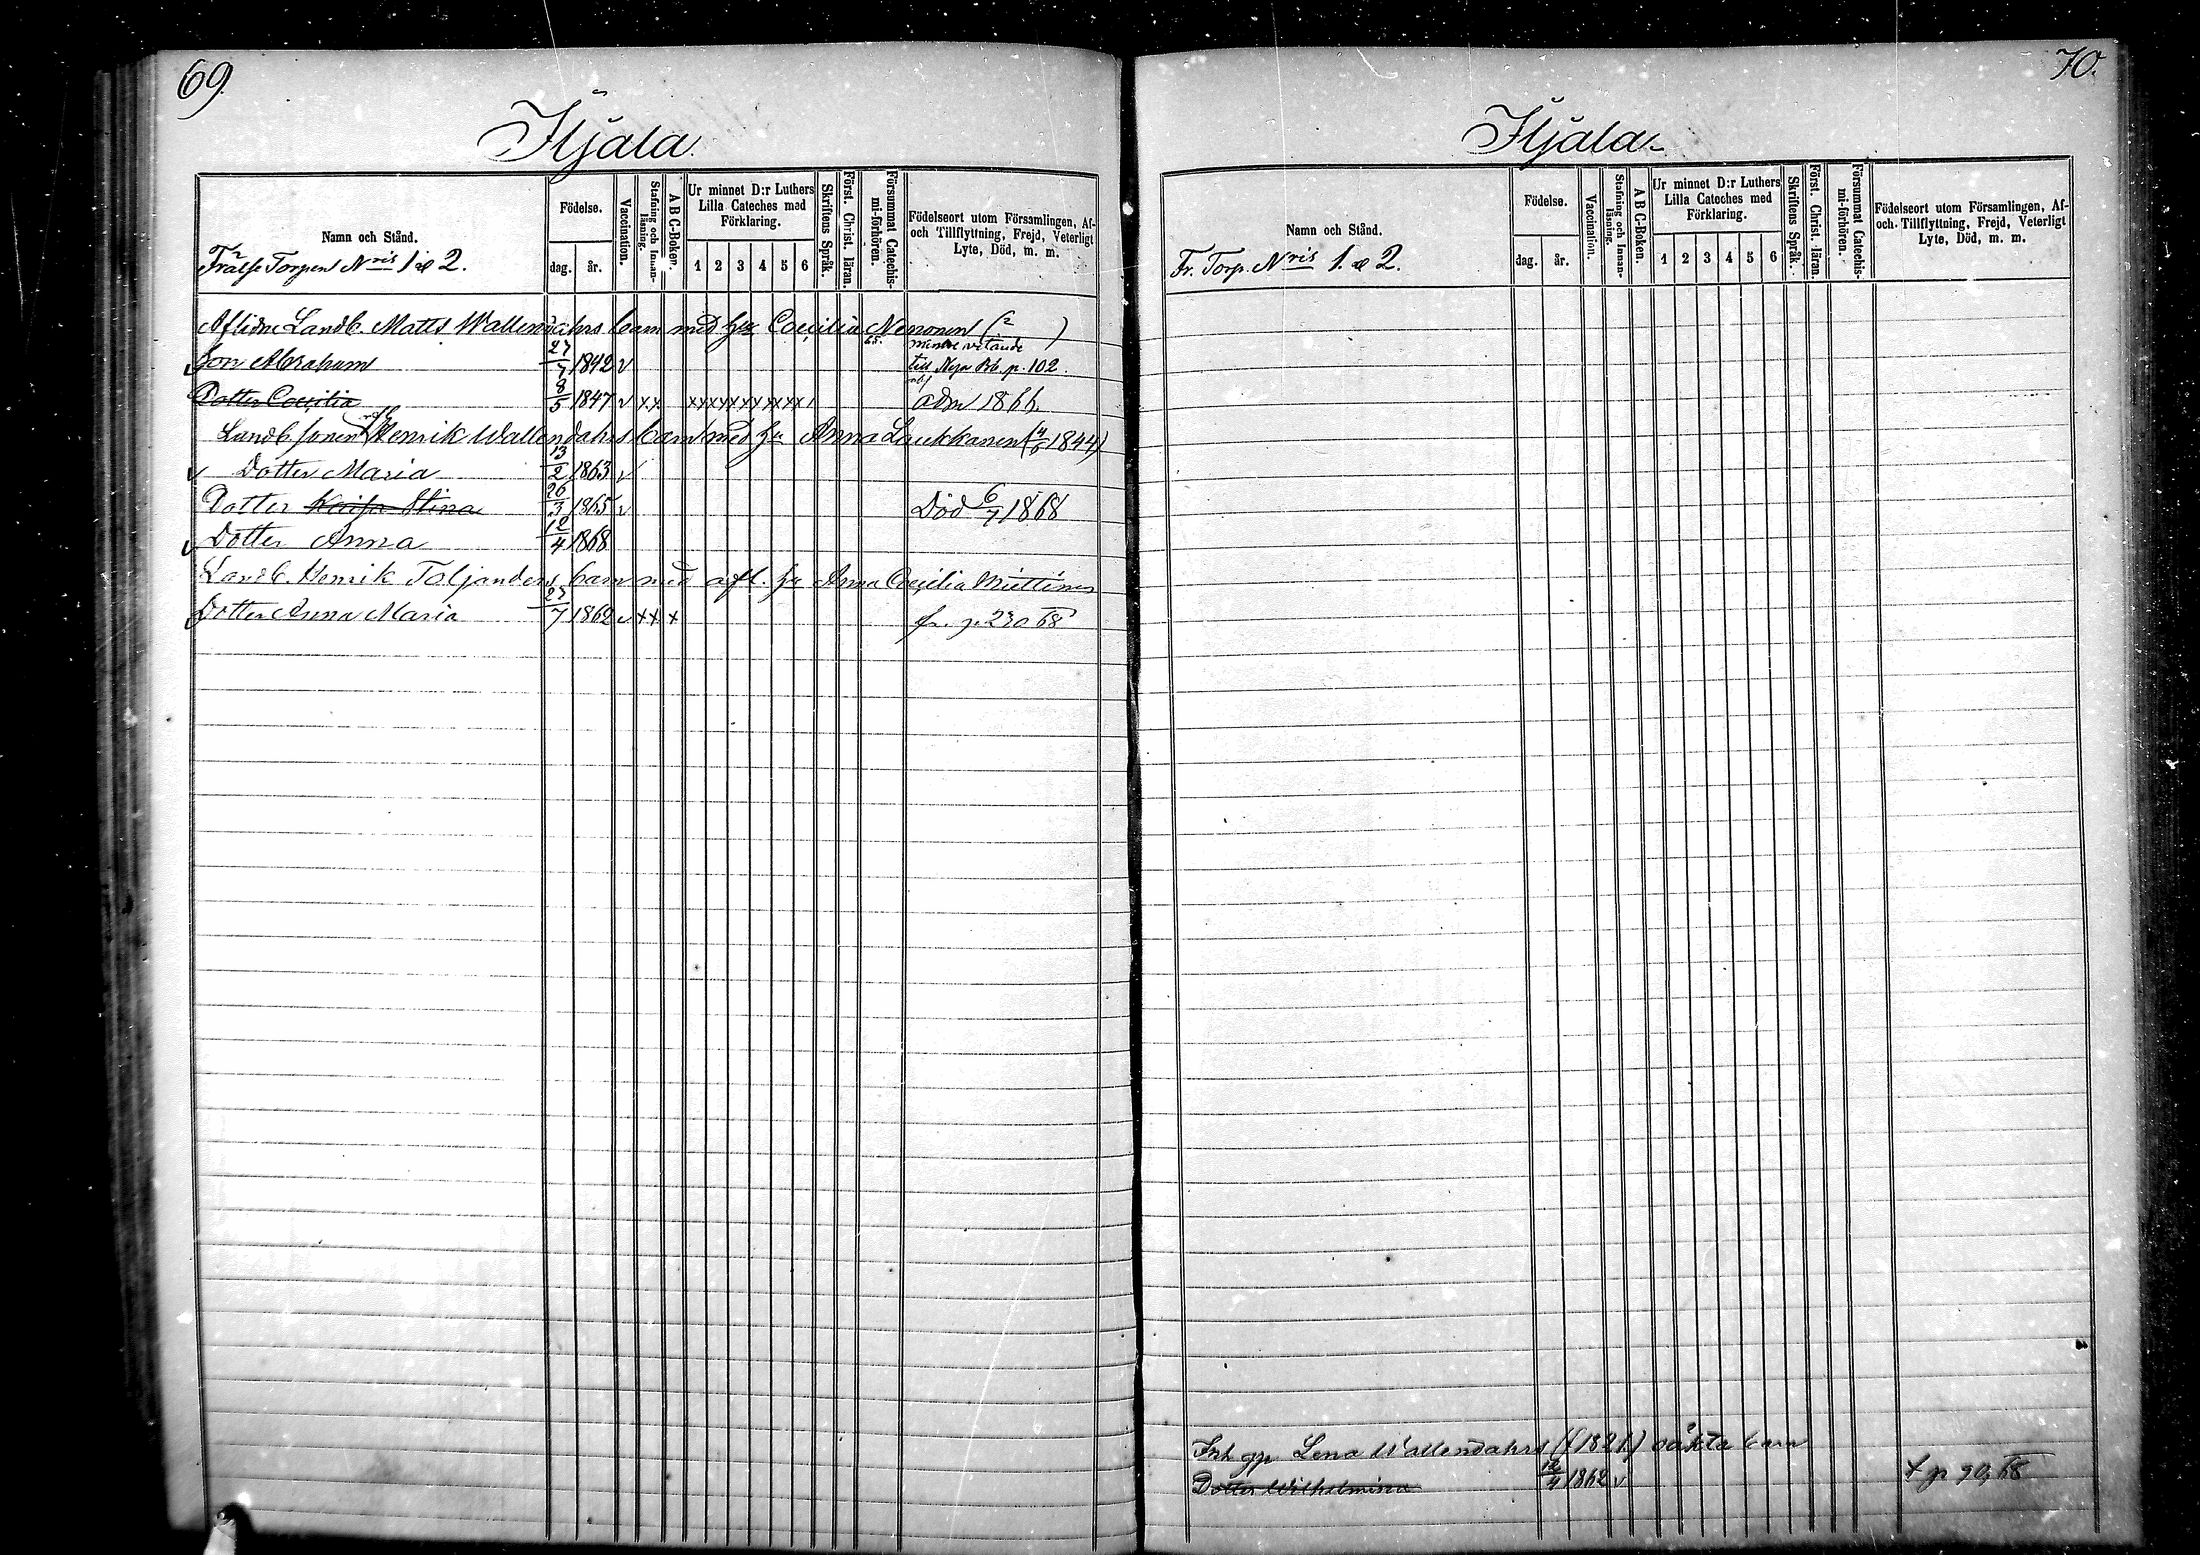 69.
Ihjala.
Namn och Stånd.
Frälse Torpen Nris 1 & 2.
Födelse.
dag. år.
Vaccination.
Stafning och Innanläsning.
A B C-Boken.
Ur minnet D:r Luthers Lilla Cateches med Förklaring.
1 2 3 4 5 6
Skriftens Språk.
Först. Christ. läran.
Försummat Catechismi-förhören.
Födelseort utom Församlingen, Af- och Tillflyttning, Frejd, Veterligt Lyte, Död, m. m.
Aflidne Landb. Matts Wallendahrs barn med h: Cœcilia Nenonen ( )
mindre vetande
Son Abraham 27/7 1842 v till Nya Bb. p. 102.
Dotter Cœcilia 8/5 1847 v x x xxxxxxxxxx adm 1866.
Landb. sonen Henrik Wallendahrs barn med h: Anna Laukkanen (4/6 1844)
v Dotter Maria 13/2 1863 v
Dotter Kaisa Stina 26/3 1865 v Död 6/7 1868
v Dotter Anna 12/4 1868
Landb. Henrik Toljanders barn med afl. h: Anna Cœcilia Miettinen
v Dotter Anna Maria 27/7 1862 v x x x fr. p. 230 68
70.
Ihjala.
Namn och Stånd.
Fr. Torp. Nris 1. & 2.
Födelse.
dag. år.
Vaccination.
Stafning och Innanläsning.
A B C-Boken.
Ur minnet D:r Luthers Lilla Cateches med Förklaring.
1 2 3 4 5 6
Skriftens Språk.
Först. Christ. läran.
Försummat Catechismi-förhören.
Födelseort utom Församlingen, Af- och Tillflyttning, Frejd, Veterligt Lyte, Död, m. m.
Inh. qp Lena Wallendahrs (f 1821.) oäkta barn
Dotter Wilhelmina 12/4 1862 v t p 90, 68